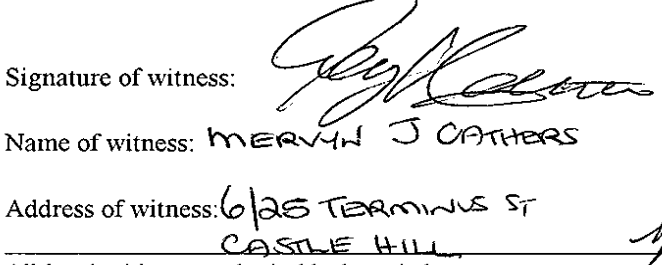 Signature of witness:
Name of witness: MERVYN J CATHERS
Address of witness: 6/25 TERMINUS ST
CASTLE HILL